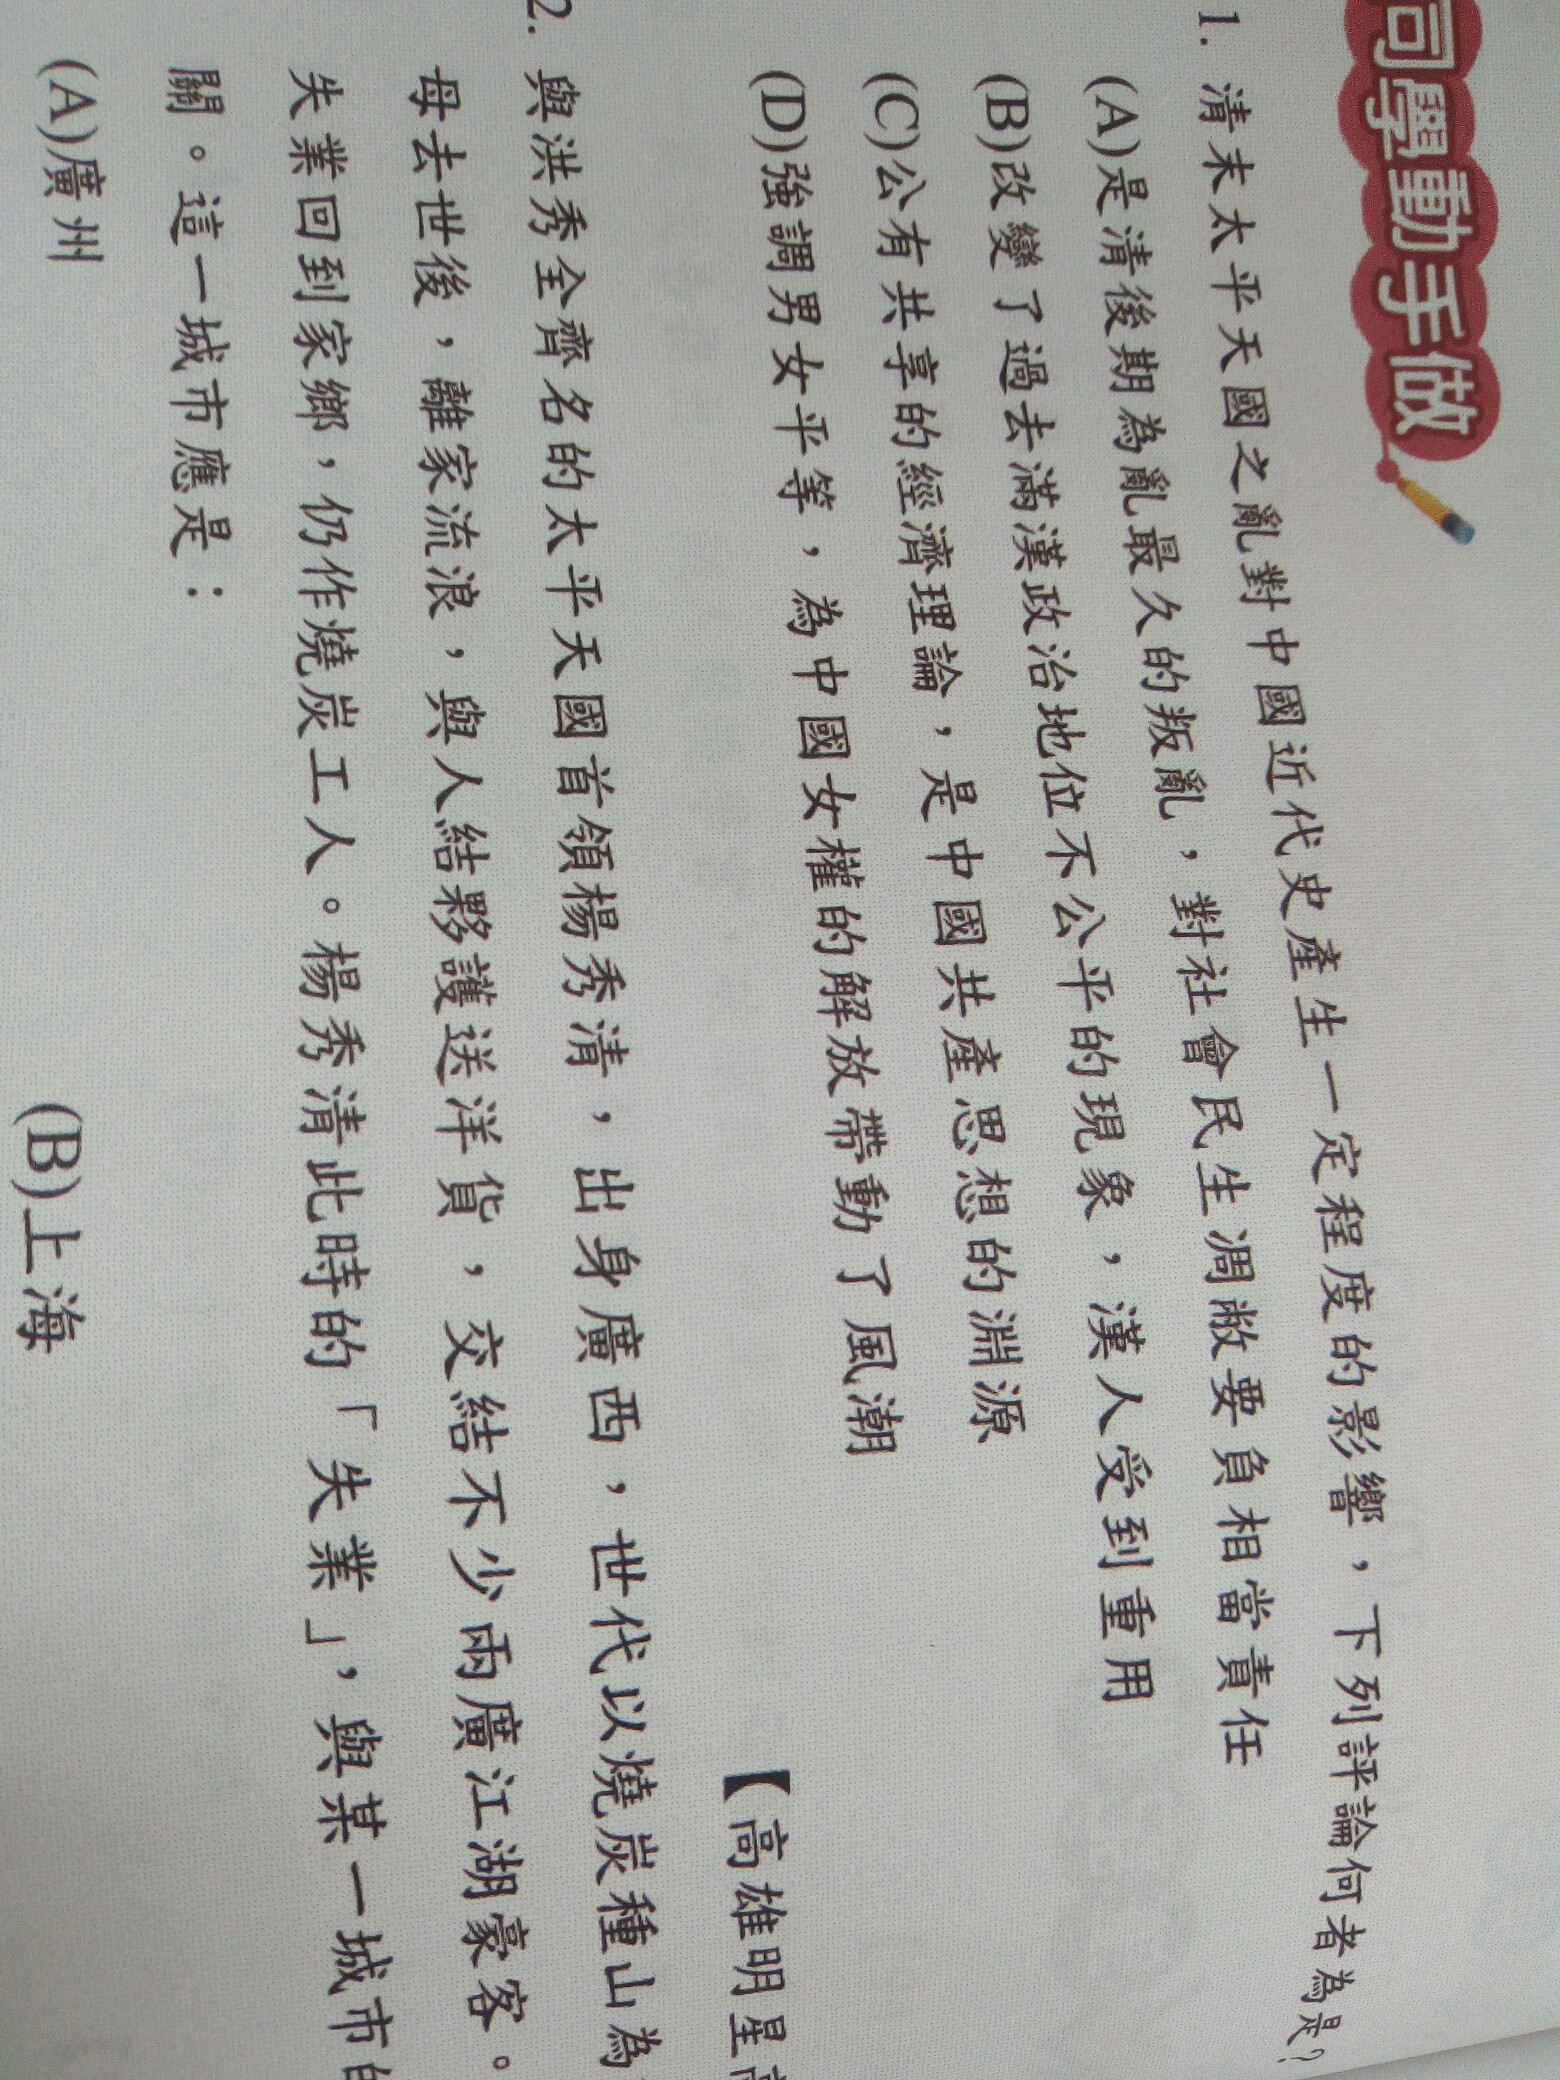 司學動手做
1. 清末太平天國之亂對中國近代史產生一定程度的影響，下列評論何者為是？
(A)是清後期為亂最久的叛亂，對社會民生凋敝要負相當責任
(B)改變了過去滿漢政治地位不公平的現象，漢人受到重用
(C)公有共享的經濟理論，是中國共產思想的淵源
(D)強調男女平等，為中國女權的解放帶動了風潮
【高雄明星高
2. 與洪秀全齊名的太平天國首領楊秀清，出身廣西，世代以燒炭種山為
母去世後，離家流浪，與人結夥護送洋貨，交結不少兩廣江湖豪客。
失業回到家鄉，仍作燒炭工人。楊秀清此時的「失業」，與某一城市的
關。這一城市應是：
(A)廣州 (B)上海